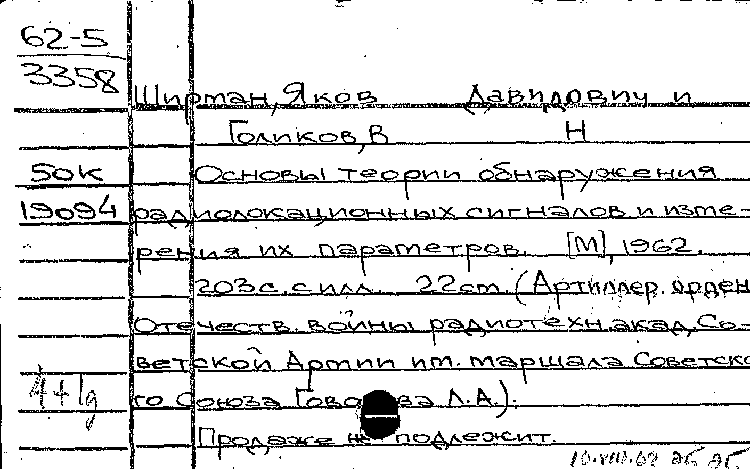 62-5
3358
Ширман, Яков Давидович и
Голиков, В Н
50к Основы теории обнаружения
19094 радиолокационных сигналов и изме-
рения их параметров. [М], 1962.
203 с. с илл. 22 cm. (Артиллер. орден
Отечеств. войны радиотехн. акад. Со-
ветской Армии им. маршала Советско
го Союза Говорова Л.А.).
Продаже не подлежит.